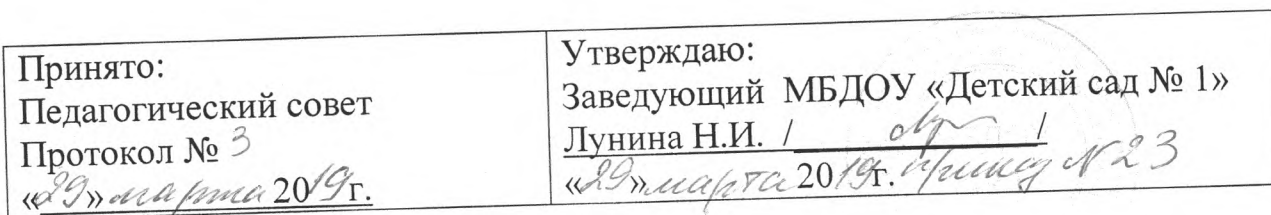 Принято:
Педагогический совет
Протокол № 3
«29» марта 2019г.
Утверждаю:
Заведующий МБДОУ «Детский сад № 1»
Лунина Н.И. / /
«29» марта 2019г. приказ № 23